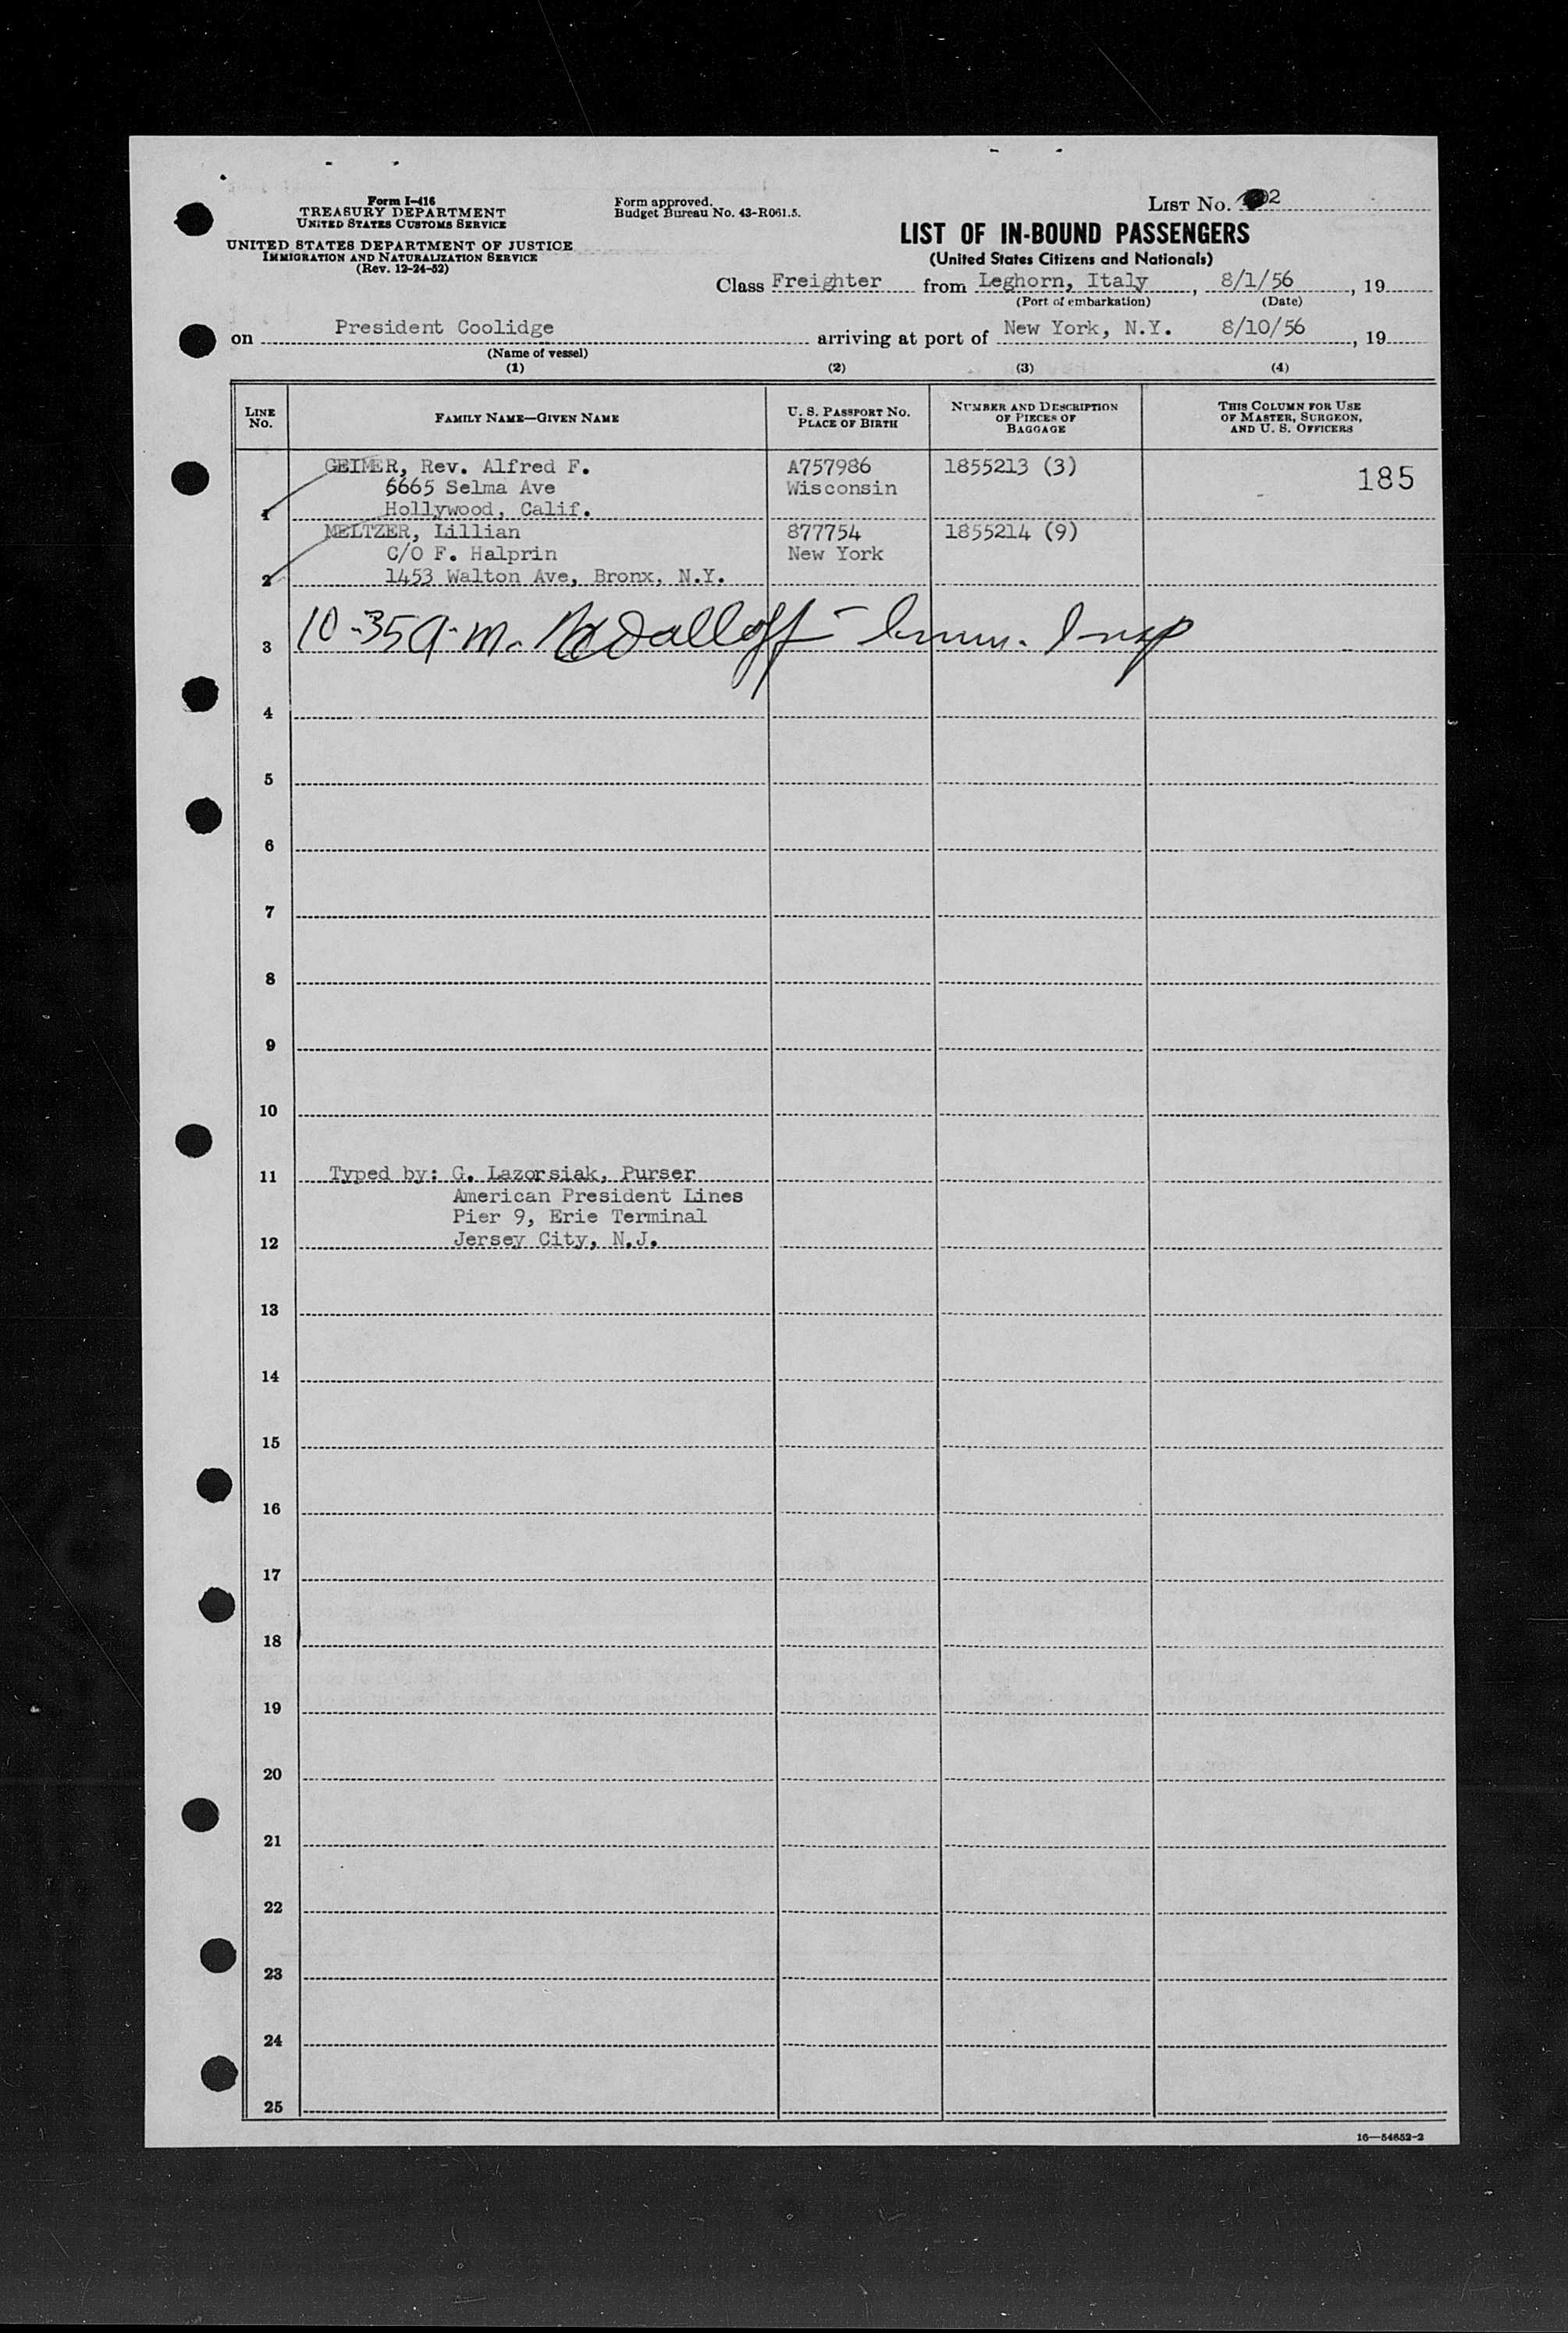 Form I-416
TREASURY DEPARTMENT
UNITED STATES CUSTOMS SERVICE
UNITED STATES DEPARTMENT OF JUSTICE
IMMIGRATION AND NATURALIZATION SERVICE
(Rev. 12-24-52)
Form approved.
Budget Bureau No. 43-R061.5.
LIST No. 2
LIST OF IN-BOUND PASSENGERS
(United States Citizens and Nationals)
Class Freighter from Leghorn, Italy, 8/1/56, 19
(Port of embarkation) (Date)
on President Coolidge arriving at port of New York, N.Y. 8/10/56, 19
(Name of vessel)
(1) (2) (3) (4)
LINE No. FAMILY NAME—GIVEN NAME U. S. PASSPORT No. PLACE OF BIRTH NUMBER AND DESCRIPTION OF PIECES OF BAGGAGE THIS COLUMN FOR USE OF MASTER, SURGEON, AND U. S. OFFICERS
GEIMER, Rev. Alfred F. A757986 1855213 (3) 185
6665 Selma Ave Wisconsin
1 Hollywood, Calif.
MELTZER, Lillian 877754 1855214 (9)
C/O F. Halprin New York
2 1453 Walton Ave, Bronx, N.Y.
3 10-35 a.m. Imm. Insp
4
5
6
7
8
9
10
11 Typed by: G. Lazorsiak, Purser
American President Lines
Pier 9, Erie Terminal
12 Jersey City, N.J.
13
14
15
16
17
18
19
20
21
22
23
24
25
16—54652-2